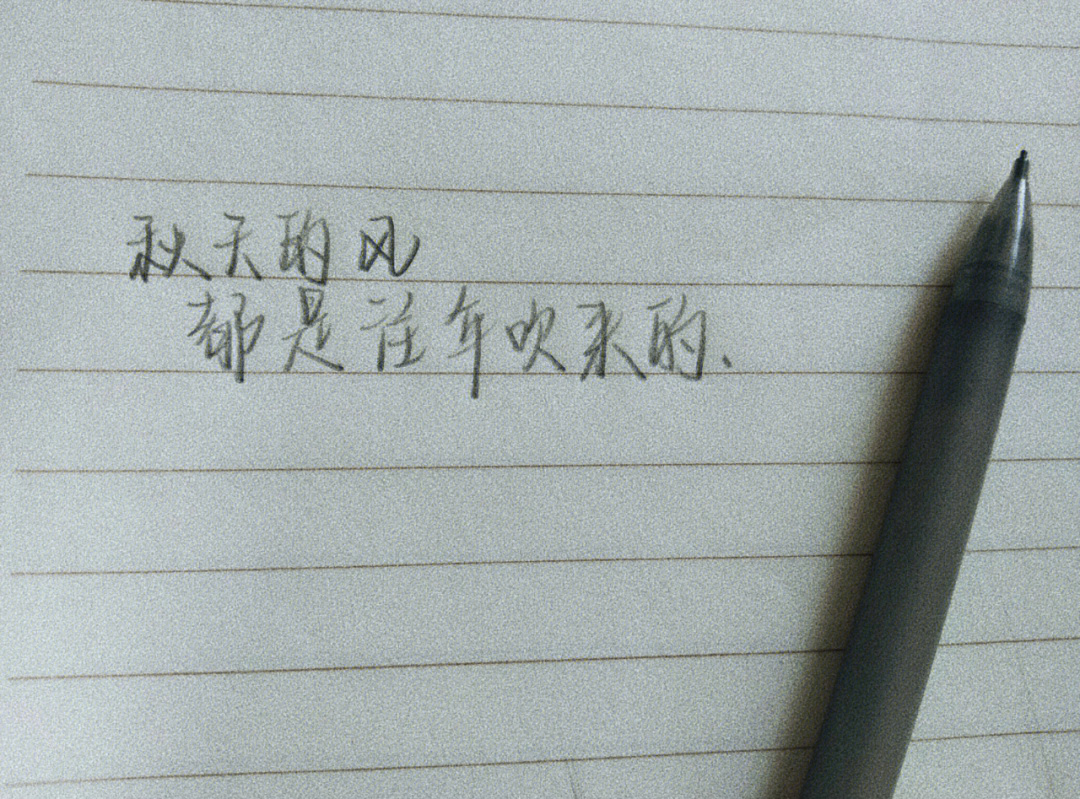 秋天的风
都是往年吹来的.